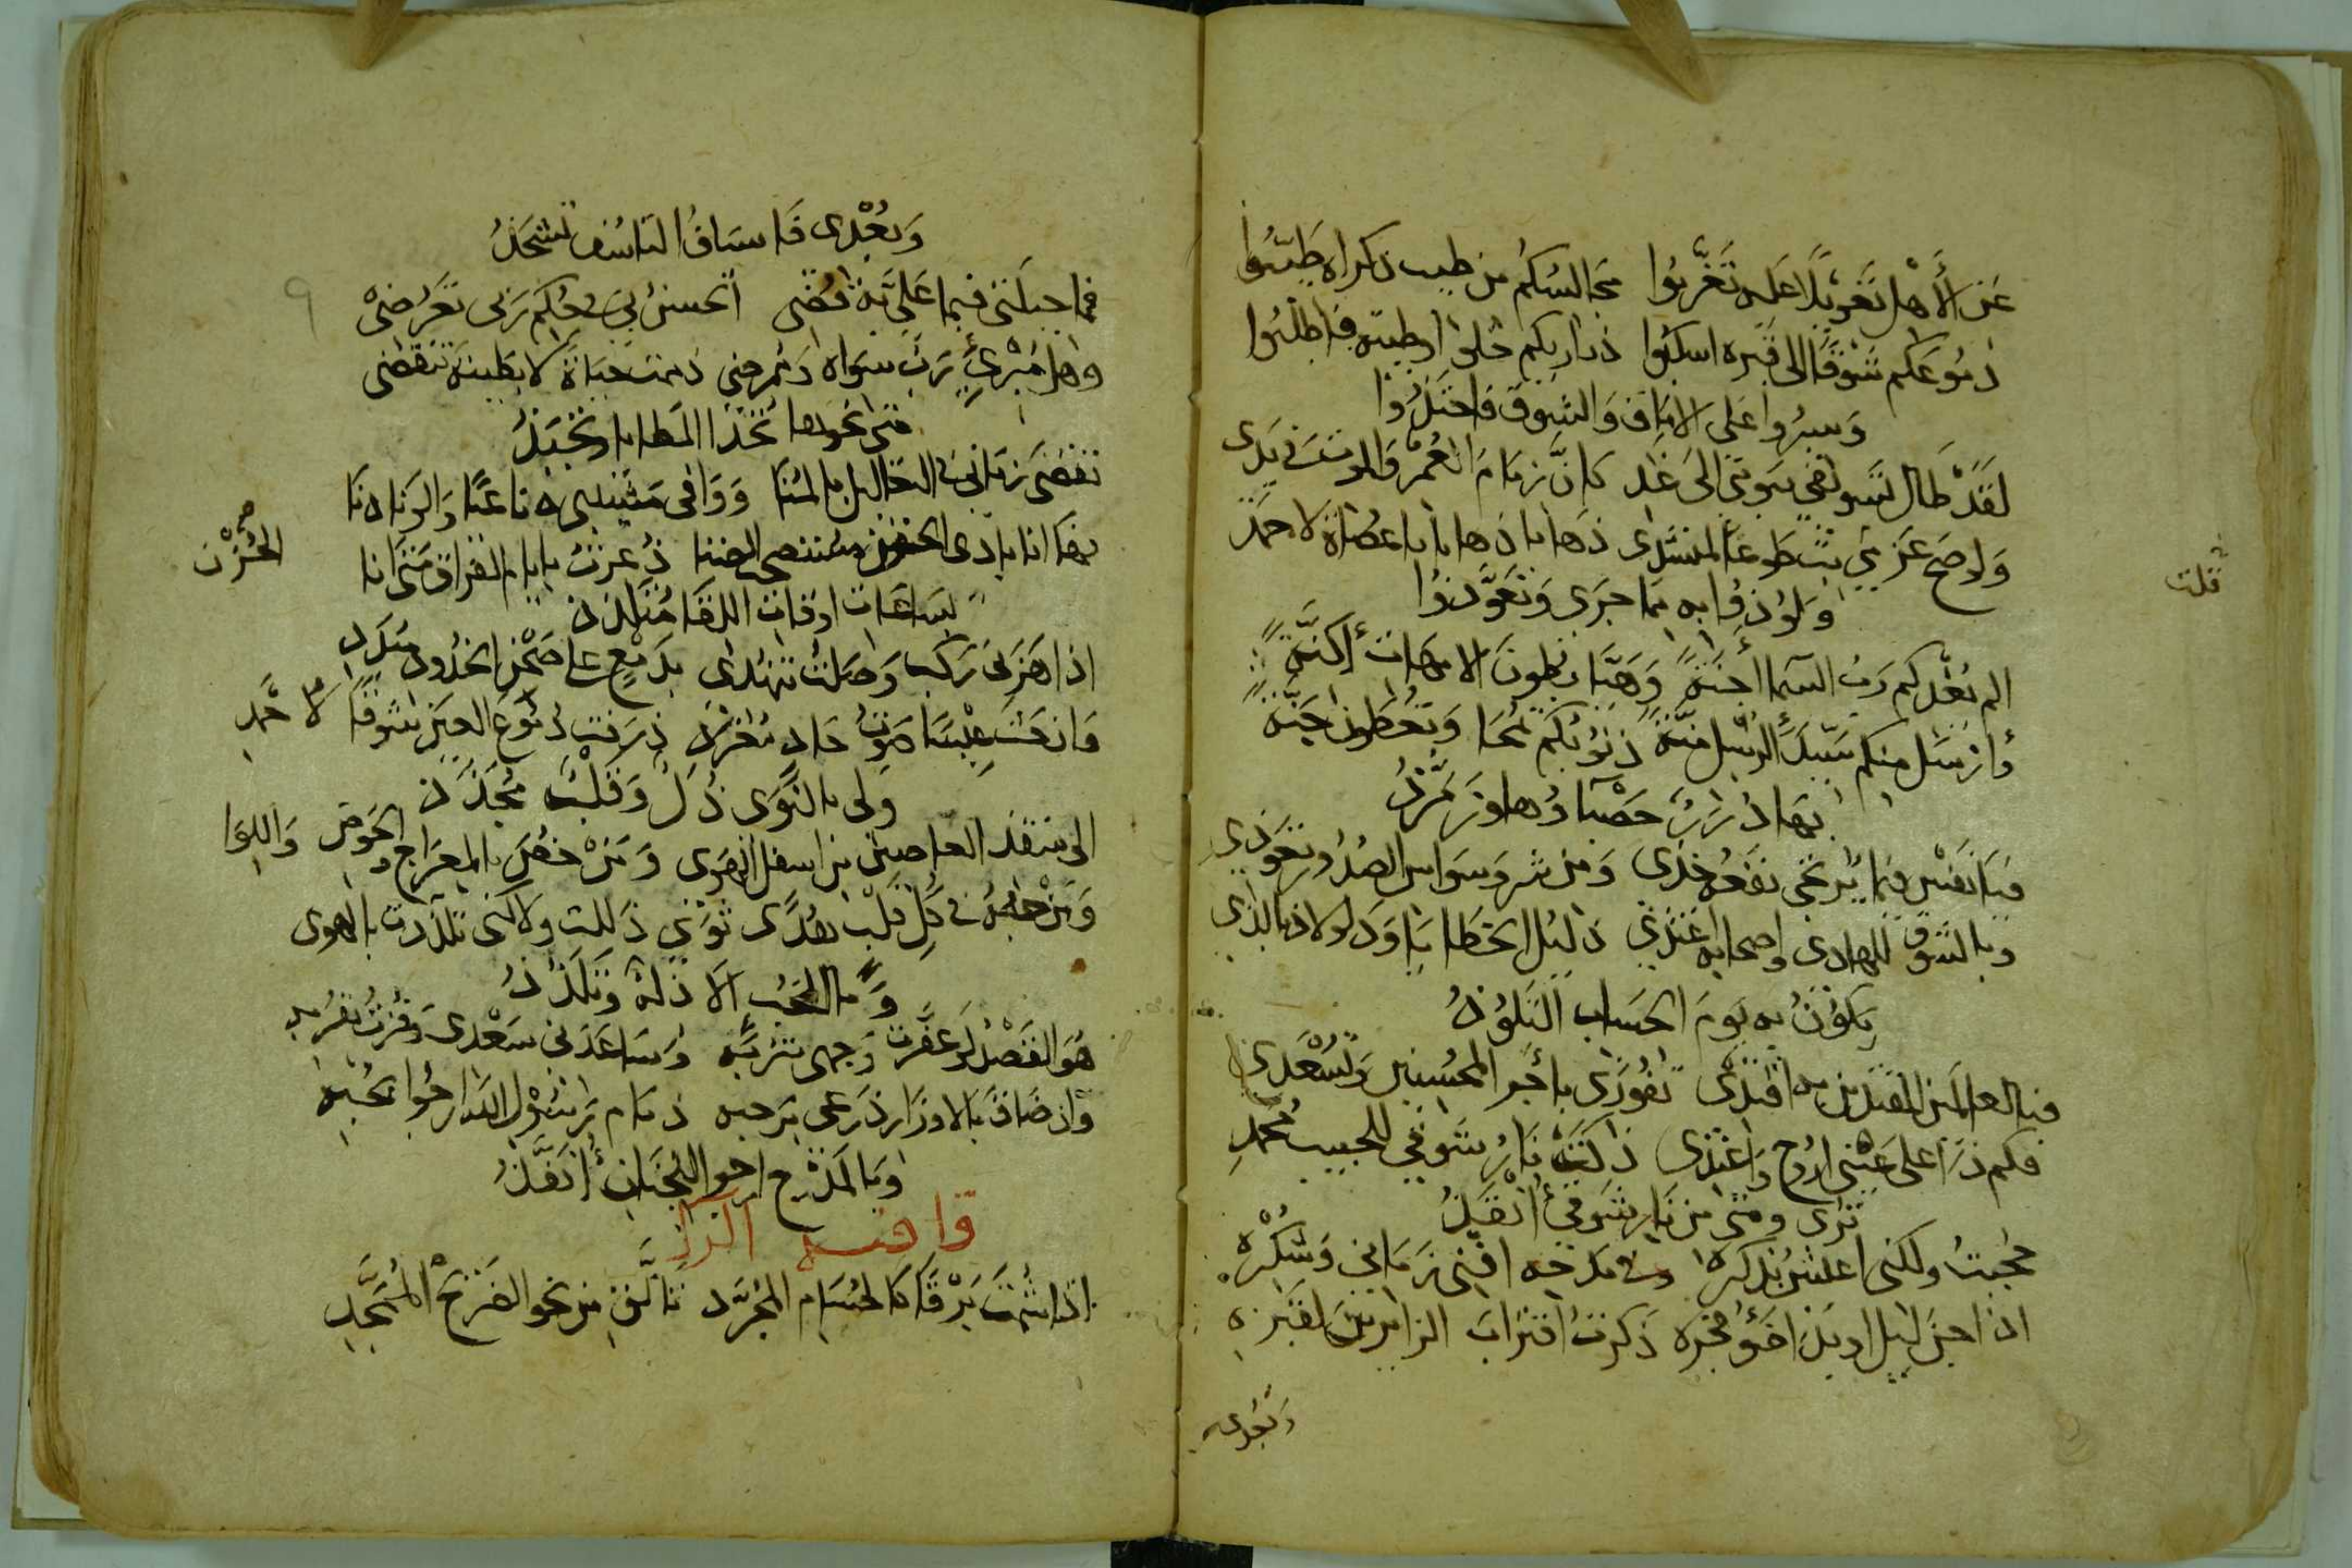 عن الأهل تغويلا عليه تغربوا مجالسكم من طيب ذكراه طيبوا
دموعكم شوقا الى قبره اسكبوا ذراريكم خلوا وطيبه فاطلبوا
وسيروا على الاماق والشوق فاحتذوا
لقد طال تسويفي بيومي الى غد كان زمام العمر والموت في يدي
واوضح عزمي بت طوعا لمنشدي ذهابا ذهابا يا عصاة لاحمد
ولوذوا به مما جرى وتعوذوا
الم يغذكم رب السما أجنة وهبا بطون الامهات أكنة
وارسل منكم سيد الرسل منة ذنوبكم تمحا وتعطون جنة
بها درر حصباؤها وزمرذ
فيا نفس فيما يرتجى نفعه خذي ومن شر وسواس الصدور تعوذي
وبالشوق للهادي واصحابه اغتذي ذليل الخطايا ود لو لاذ بالذي
يكون به يوم الحساب التلوذ
فيا لعالمين المقتدين به اقتدي تفوزي باجر المحسنين وتسعدي
فكم ذا على عيني اروح واغتدي ذكت نار شوقي للحبيب محمد
ترى ومتى من نار شوقي أنقذ
حجبت ولكني اعلش بذكره وفي مدحه افني زماني وشكره
اذا جن ليل او بدا ضوء فجره ذكرت اقتراب الزائرين لقبره
وبعدي
قلت
وبعدي فاسياف التاسف تشحذ
فما حيلتي فيما علي به قضى اتحسن بي في حكم ربي تعرضي
وهل مبرئ رب سواه لممرضي ذممت حياة لا بطيبة تنقضي
متى نحوها تخذا المطايا وتجبذ
تقضى زماني في التعاليل بالمنا ووافى مشيبي ناعيا والونا ونا
فها انا بادي الحزن مستصحب الضنا ذعرت بايام الفراق متى انا
الحزن صح
بساعات اوقات اللقا متلذذ
اذا هز لي ركب وصلت تنهدي بدمع على صحن الخدود مبدد
وان حث عيسا صوت حاد مغرد ذرفت دموع العين شوقا لاحمد
ولي بالنوى ذل وقلب مجذذ
الى منقذ العاصين من اسفل الهوى ومن خص بالمعراج والحوض واللوا
ومن حبه في كل قلب هدى ثوى ذللت ولاكني تلذذت بالهوى
وما الحب الا ذلة وتلذذ
هو القصد لو عفرت وجهي بتربه وساعدني سعدي وفزت بقربه
وان ضاق بالاوزار ذرعي برحبه ذمام رسول الله ارجوا بحبه
وبالمدح ارجو للجنان أنفذ
قافيه الرا
اذا شمت برقا كالحسام المجرد تألق من نحو الضريح الممجد